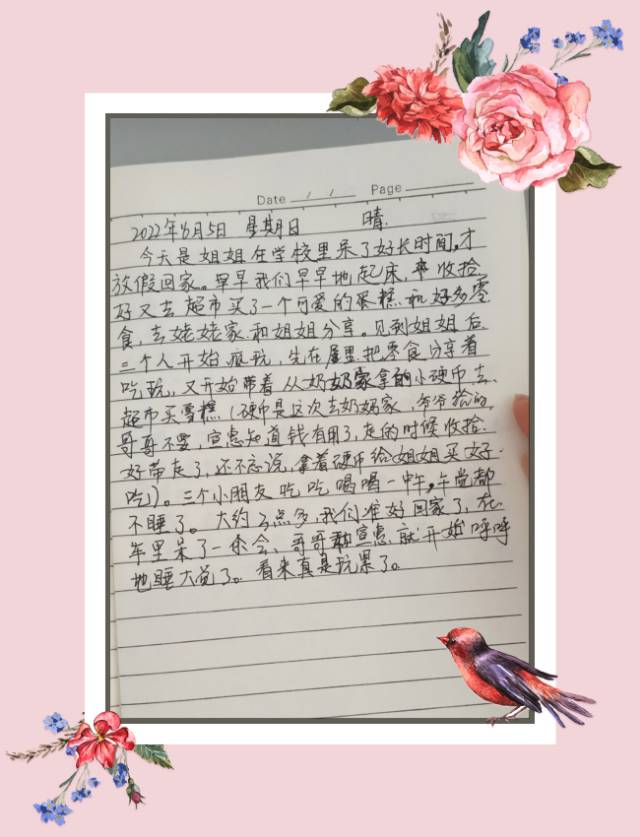 Date / / Page
2022年6月5日 星期日 晴.
今天是姐姐在学校里呆了好长时间,才
放假回家。早早我们早早地起床,收拾
好又去超市买了一个可爱的蛋糕和好多零
食,去姥姥家和姐姐分享。见到姐姐后
三个人开始疯玩,先在屋里把零食分享着
吃玩,又开始带着从奶奶家拿的小硬币去
超市买雪糕(硬币是这次去奶奶家,爷爷给的
哥哥不要,宣惠知道钱有用了,走的时候收拾
好带走了,还不忘说,拿着硬币给姐姐买好
吃)。三个小朋友吃吃喝喝一中午,午觉都
不睡了。大约3点多,我们准好回家了,在
车里呆了一余会、哥哥和宣惠,就开始呼呼
地睡大觉了。看来真是玩累了。